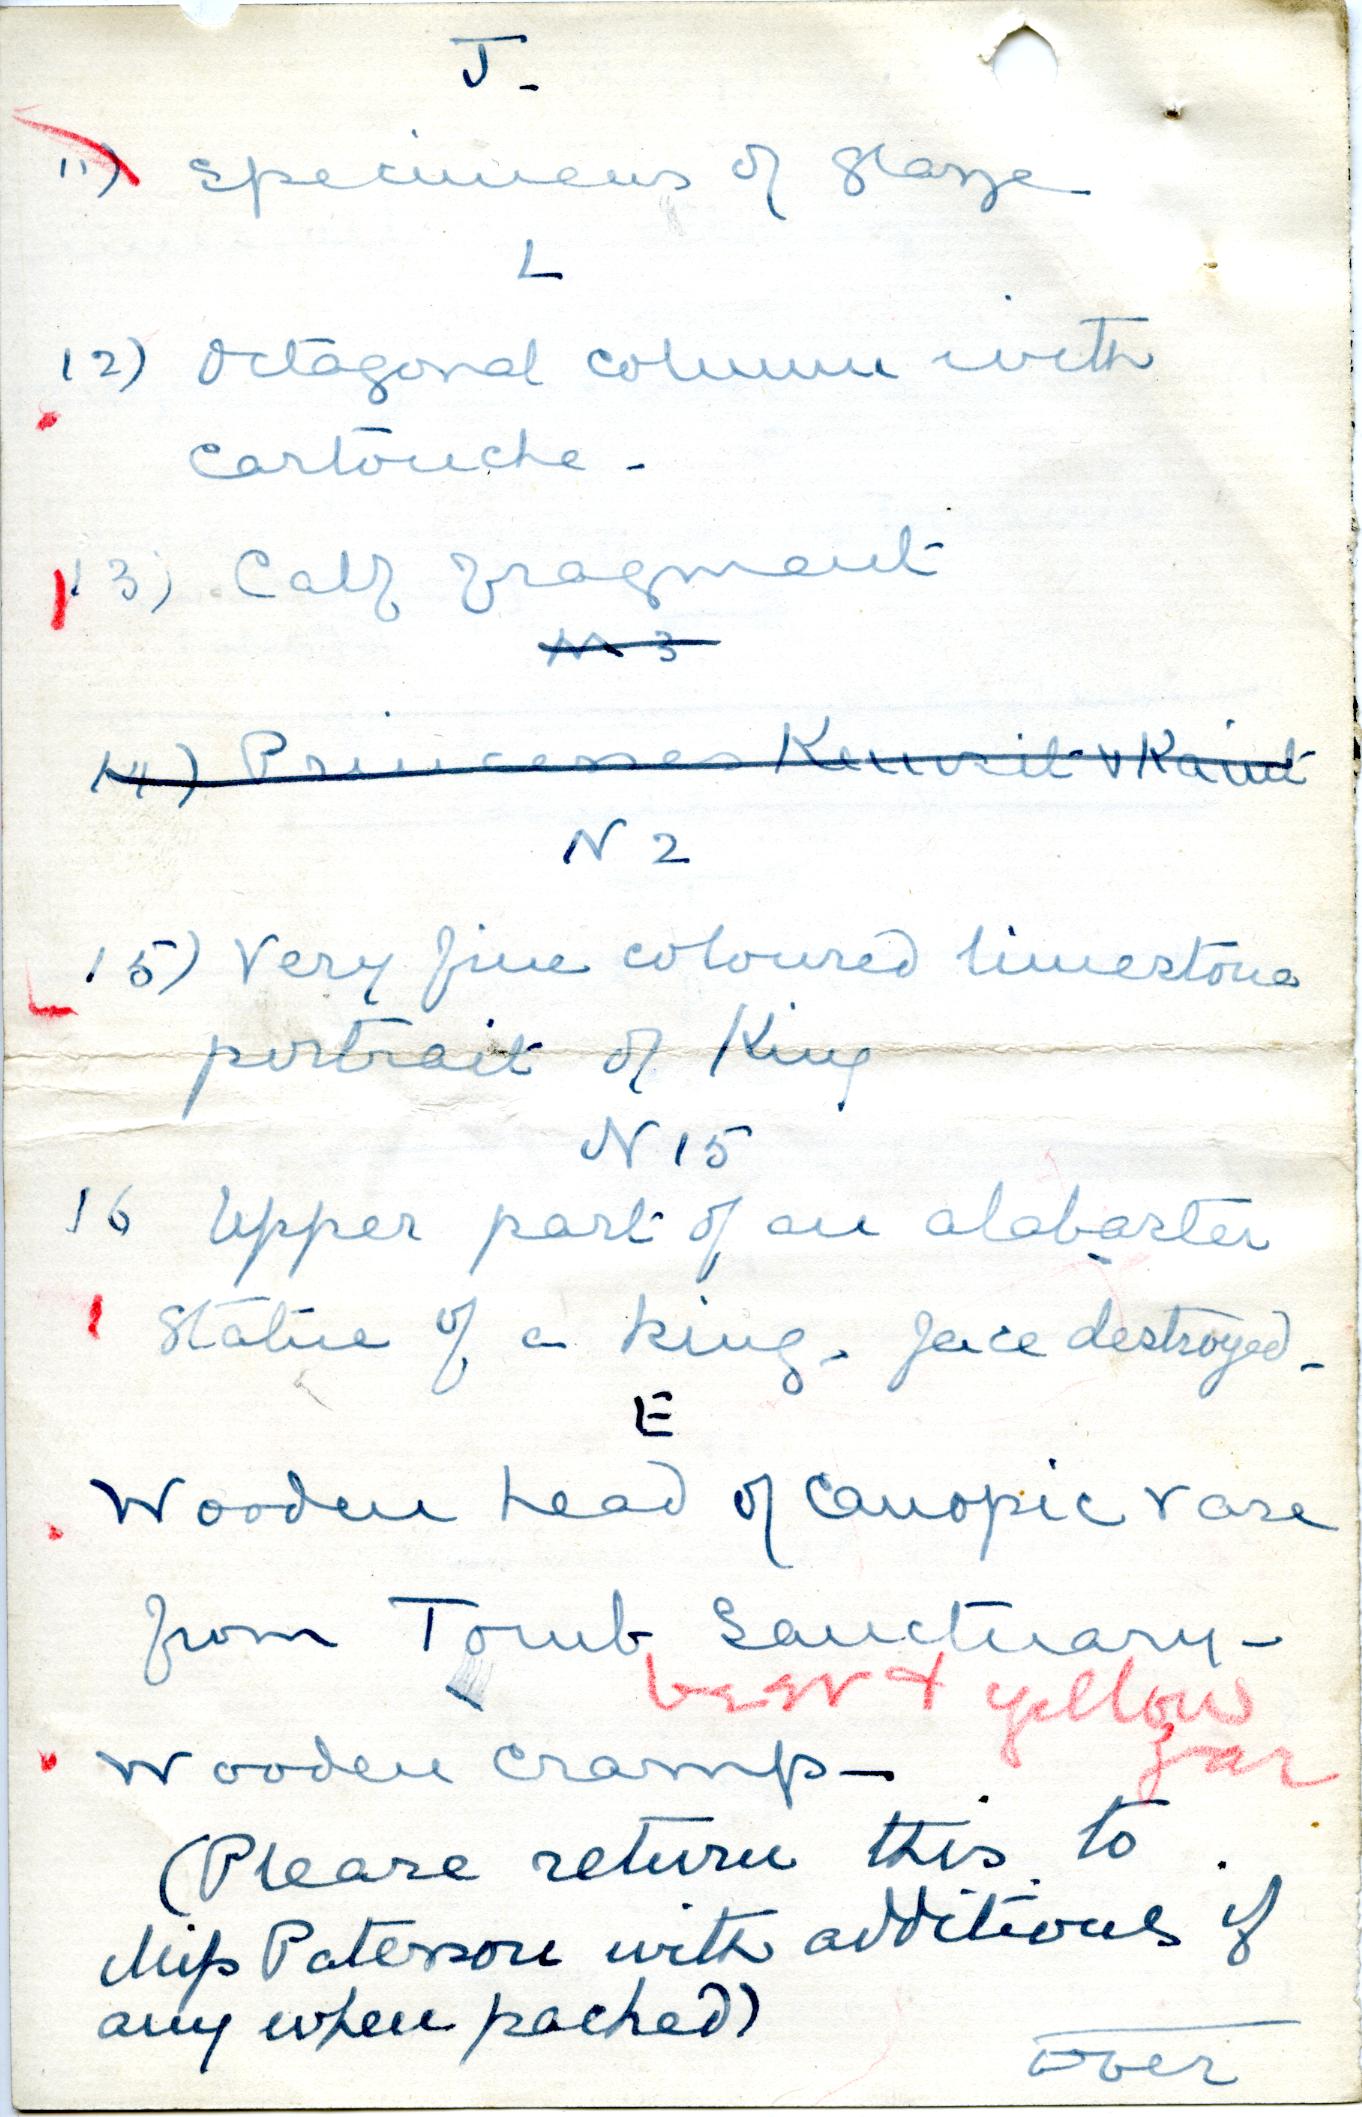 J-
11) Specimens of glaze
L
12) Octagonal column with
cartouche -
13) Calf fragment
M 3
14) Princesses Kemsit & Kauit
N 2
15) Very fine coloured limestone
portrait of King
N 15
16 Upper part of an alabaster
Statue of a king. face destroyed -
E
Wooden head of Canopic vase
from Tomb Sanctuary -
best & yellow
jar
Wooden cramp -
(Please return this to
Miss Paterson with additions if
any when packed)
over